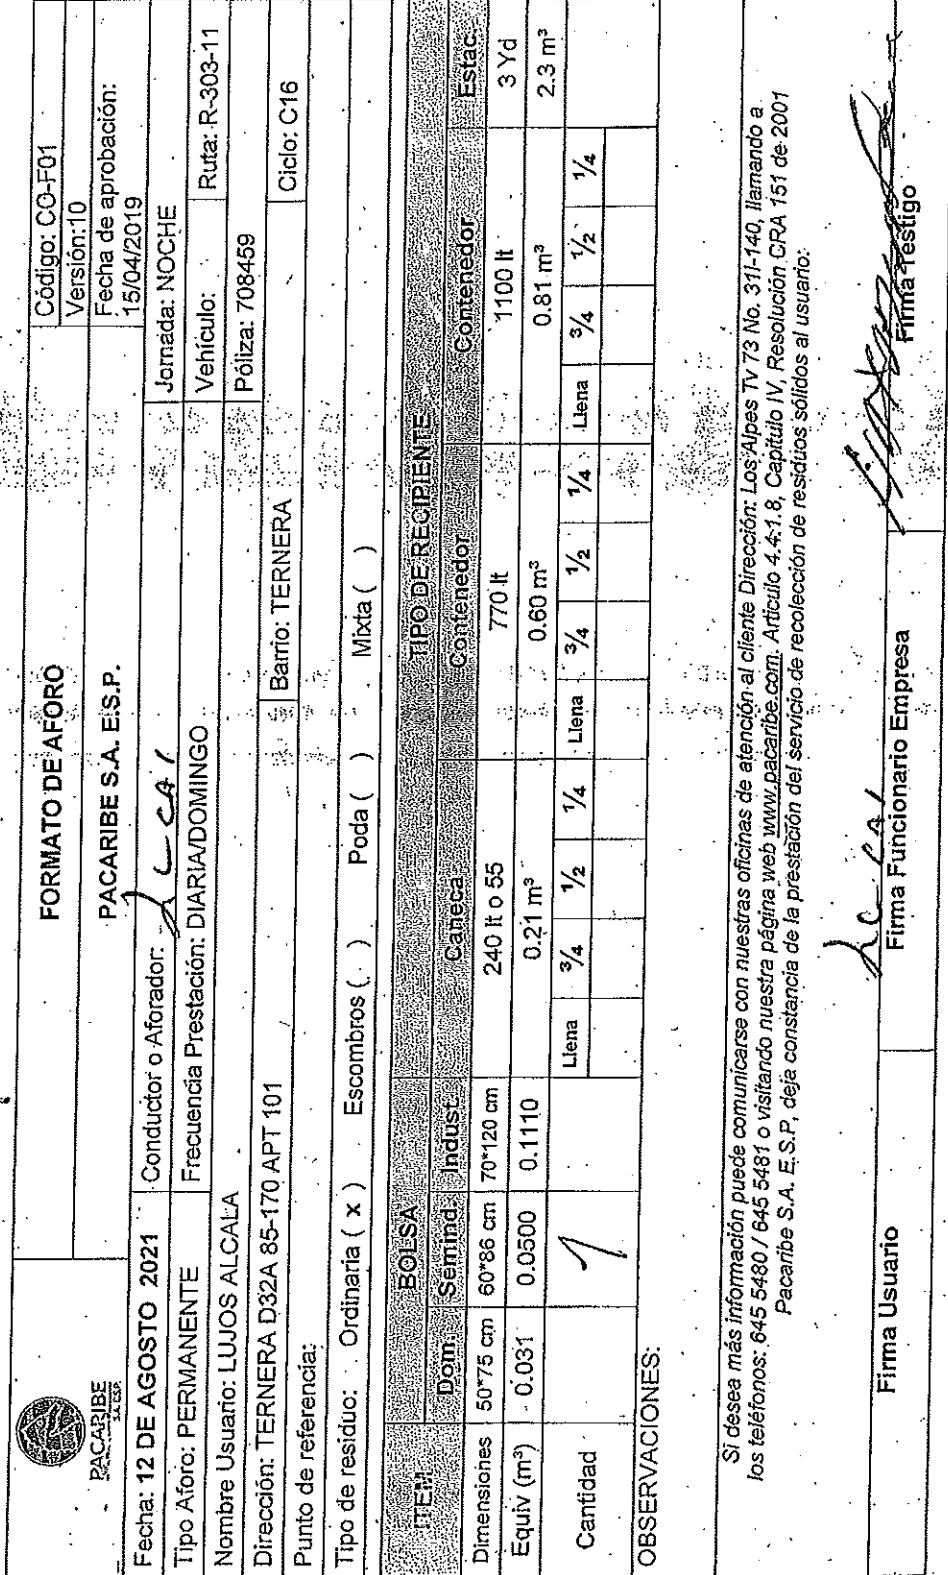 PACARIBE
S.A. E.S.P.
FORMATO DE AFORO
PACARIBE S.A. E.S.P.
Código: CO-F01
Versión:10
Fecha de aprobación:
15/04/2019
Fecha: 12 DE AGOSTO 2021 Conductor o Aforador: Jornada: NOCHE
Tipo Aforo: PERMANENTE Frecuencia Prestación: DIARIA/DOMINGO Vehículo: Ruta: R-303-11
Nombre Usuario: LUJOS ALCALA Póliza: 708459
Dirección: TERNERA D32A 85-170 APT 101 Barrio: TERNERA Ciclo: C16
Punto de referencia:
Tipo de residuo: Ordinaria ( x ) Escombros ( ) Poda ( ) Mixta ( )
ITEM BOLSA TIPO DE RECIPIENTE
Dom. Semind. Indust. Caneca Contenedor Contenedor Estac.
Dimensiones 50*75 cm 60*86 cm 70*120 cm 240 lt o 55 770 lt 1100 lt 3 Yd
Equiv (m³) 0.031 0.0500 0.1110 0.21 m³ 0.60 m³ 0.81 m³ 2.3 m³
Cantidad 1 Llena 3/4 1/2 1/4 Llena 3/4 1/2 1/4 Llena 3/4 1/2 1/4
OBSERVACIONES:
Si desea más información puede comunicarse con nuestras oficinas de atención al cliente Dirección: Los Alpes Tv 73 No. 31I-140, llamando a
los teléfonos: 645 5480 / 645 5481 o visitando nuestra página web www.pacaribe.com. Artículo 4.4.1.8, Capítulo IV, Resolución CRA 151 de 2001
Pacaribe S.A. E.S.P, deja constancia de la prestación del servicio de recolección de residuos sólidos al usuario:
Firma Usuario Firma Funcionario Empresa Firma Testigo